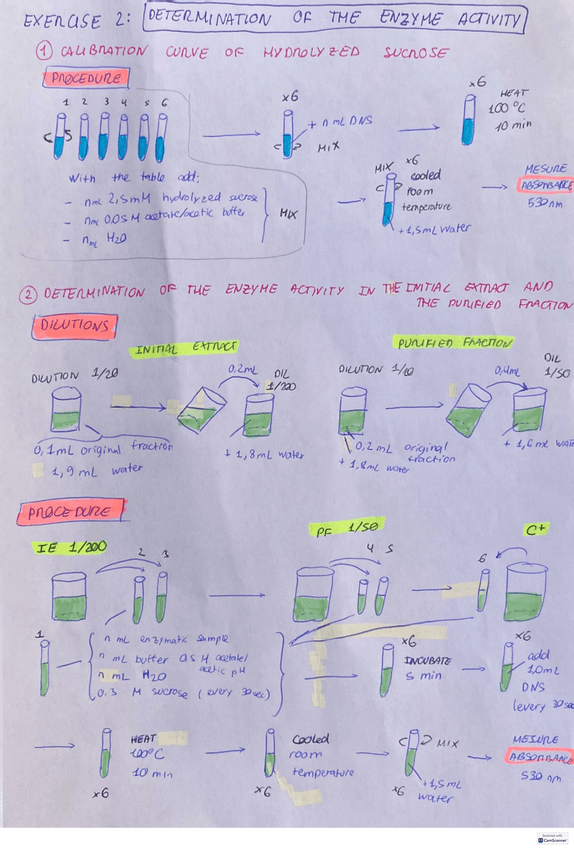 EXERCISE 2: DETERMINATION OF THE ENZYME ACTIVITY
① CALIBRATION CURVE OF HYDROLYZED SUCROSE
PROCEDURE
1 2 3 4 5 6
With the table add:
- n mL 2,5mM hydrolyzed sucrose
- n mL 0.05M acetate/acetic buffer
- n mL H2O
MIX
x6
+ n mL DNS
MIX
x6
HEAT
100°C
10 min
MIX
x6
cooled
room
temperature
+1,5mL water
MESURE
ABSORBANCE
530nm
② DETERMINATION OF THE ENZYME ACTIVITY IN THE INITIAL EXTRACT AND
THE PURIFIED FRACTION
DILUTIONS
INITIAL EXTRACT
DILUTION 1/20
0,2mL
DIL
1/200
0,1mL original fraction
1,9 mL water
+ 1,8mL water
PURIFIED FRACTION
DILUTION 1/10
0,4mL
DIL
1/50
0,2mL original
fraction
+ 1,8mL water
+ 1,6mL water
PROCEDURE
IE 1/200
2 3
PF 1/50
4 5
C+
6
1
n mL enzymatic sample
n mL buffer 0.5 M acetate/
acetic pH
n mL H2O
0.3 M sucrose (every 30sec)
x6
INCUBATE
5 min
x6
add
1.0mL
DNS
(every 30sec
HEAT
100°C
10 min
x6
Cooled
room
temperature
x6
MIX
+1,5mL
water
x6
MESURE
ABSORBANCE
530nm
Scanned with
CamScanner